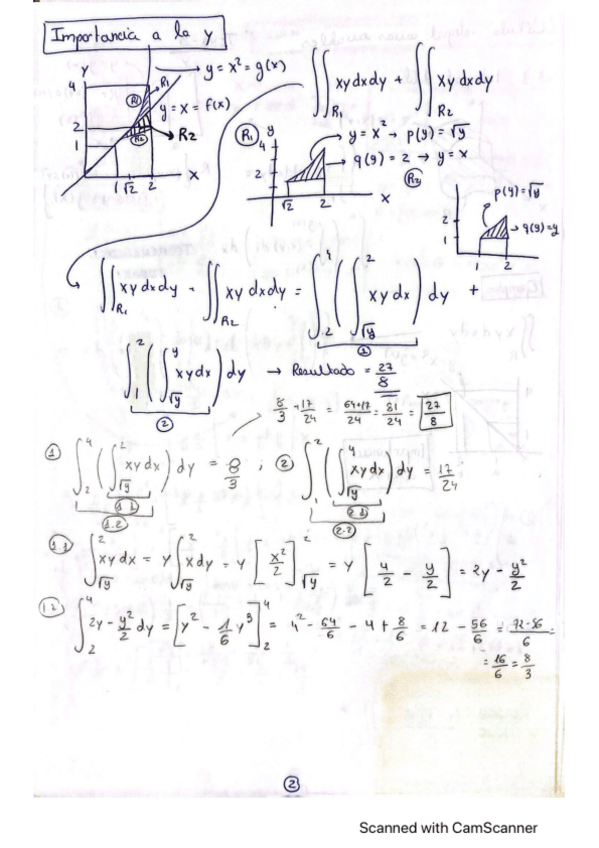 Importancia a la y
y = x² = g(x)
y = x = f(x)
R1
R2
∬R1 xydxdy + ∬R2 xydxdy
R1
y = x² → p(y) = √y
q(y) = 2 → y = x
R2
p(y) = √y
q(y) = y
∬R1 xy dxdy + ∬R2 xy dxdy = ∫₂⁴ ( ∫√y² xy dx ) dy +
①
∫₁² ( ∫√y^y xydx ) dy → Resultado = 27/8
②
8/3 + 17/24 = 64+17/24 = 81/24 = 27/8
① ∫₂⁴ ( ∫√y² xy dx ) dy = 8/3 ; ② ∫₁² ( ∫√y^y xy dx ) dy = 17/24
1.1 2.1
1.2 2.2
1.1 ∫√y² xy dx = y ∫√y² x dy = y [ x²/2 ]√y² = y [ 4/2 - y/2 ] = 2y - y²/2
1.2 ∫₂⁴ 2y - y²/2 dy = [ y² - 1/6 y³ ]₂⁴ = 4² - 64/6 - 4 + 8/6 = 12 - 56/6 = 72-56/6 =
= 16/6 = 8/3
②
Scanned with CamScanner